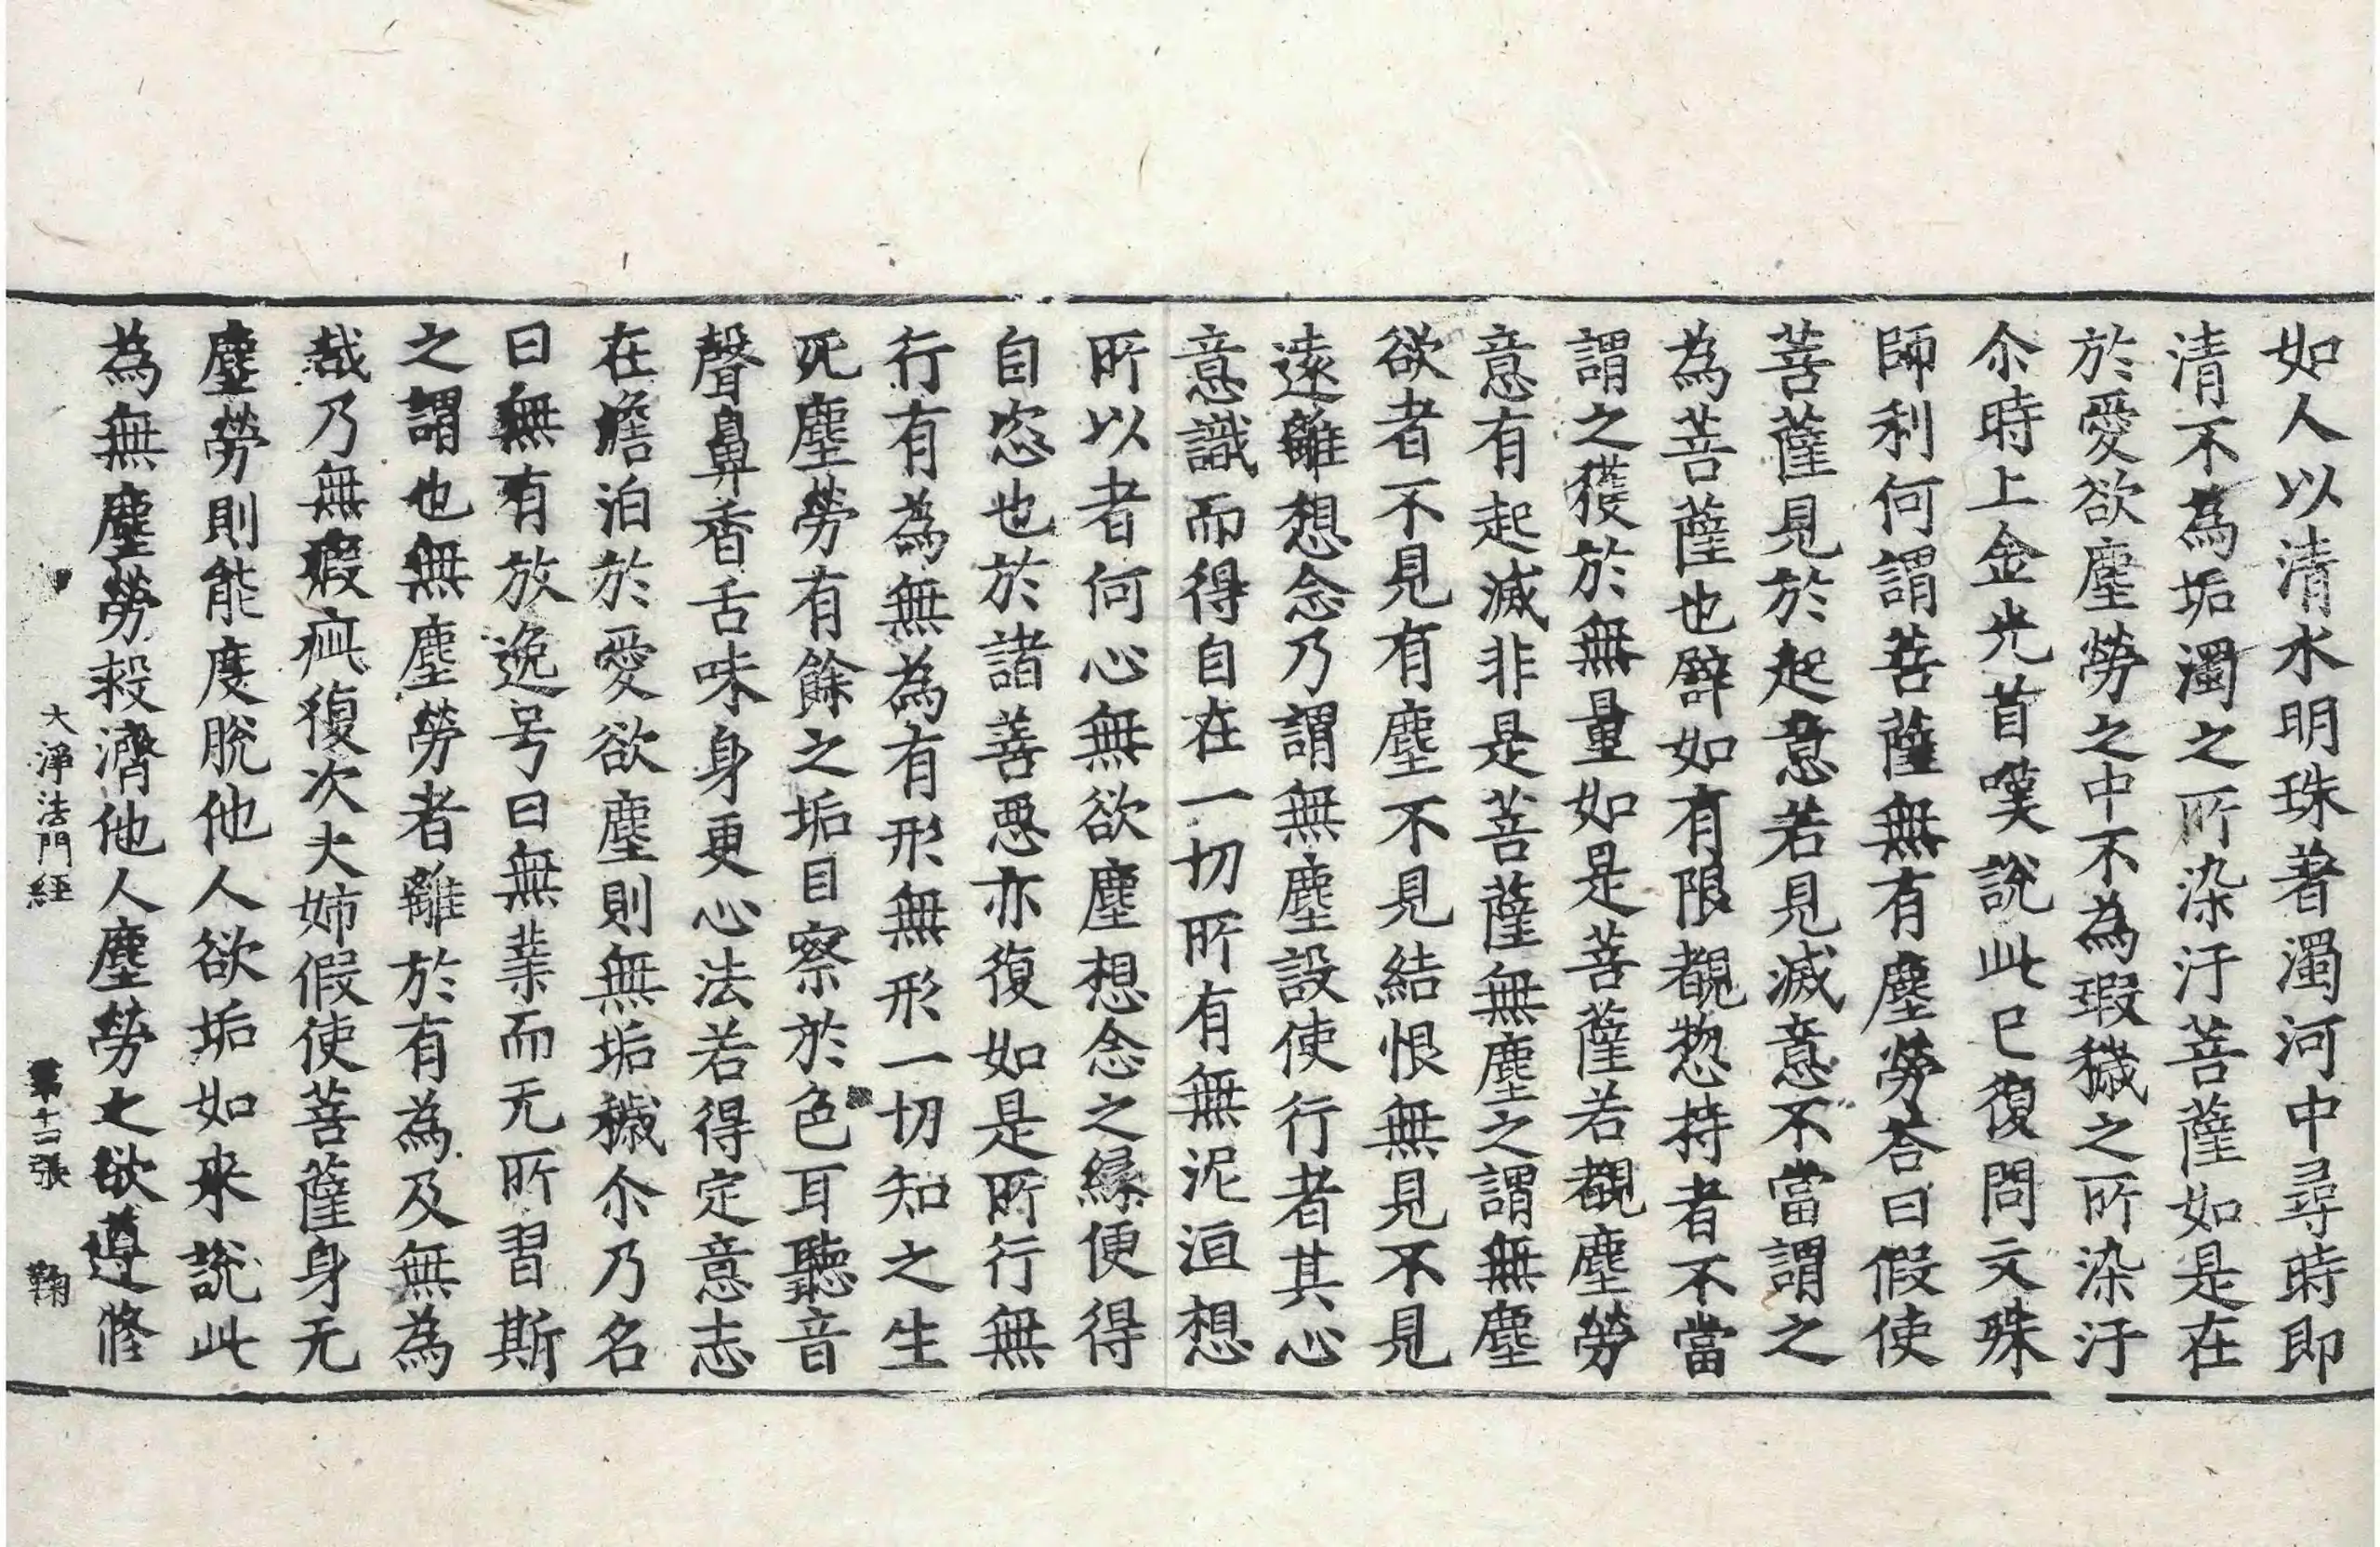 如人以清水明珠著濁河中尋時即
清不為垢濁之所染汙菩薩如是在
於愛欲塵勞之中不為瑕穢之所染汙
尒時上金光首嘆說此已復問文殊
師利何謂菩薩無有塵勞荅曰假使
菩薩見於起意若見滅意不當謂之
為菩薩也譬如有限覩惣持者不當
謂之獲於無量如是菩薩若覩塵勞
意有起滅非是菩薩無塵之謂無塵
欲者不見有塵不見結恨無見不見
遠離想念乃謂無塵設使行者其心
意識而得自在一切所有無泥洹想
所以者何心無欲塵想念之緣便得
自恣也於諸善惡亦復如是所行無
行有為無為有形無形一切知之生
死塵勞有餘之垢目察於色耳聽音
聲鼻香舌味身更心法若得定意志
在憺泊於愛欲塵則無垢穢尒乃名
曰無有放逸号曰無業而无所習斯
之謂也無塵勞者離於有為及無為
哉乃無瑕疵復次大姉假使菩薩身无
塵勞則能度脫他人欲垢如来說此
為無塵勞救濟他人塵勞之欲遵修
大淨法門經 第十二張 鞠